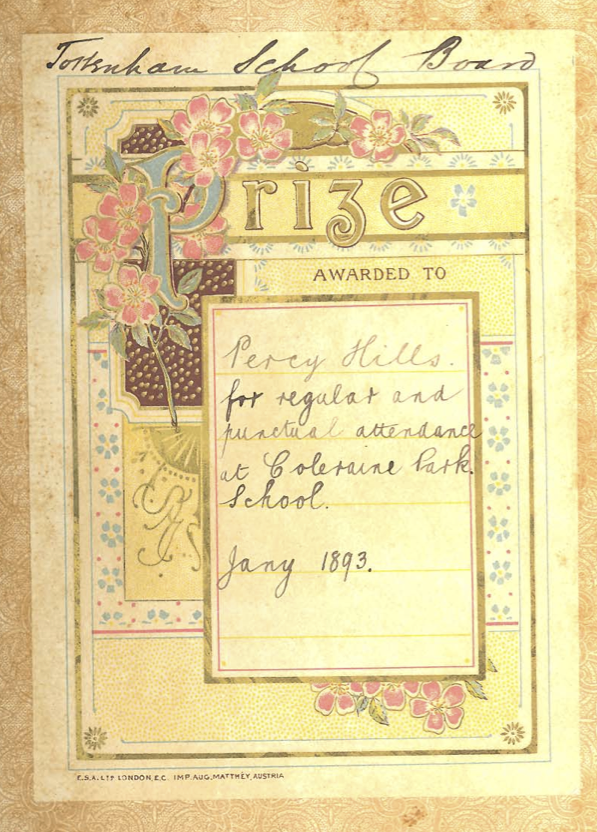 Tottenham School Board
Prize
AWARDED TO
Percy Hills.
for regular and
punctual attendance
at Coleraine Park.
School.
Jany 1893.
E.S.A. LTD LONDON, E.C. IMP. AUG. MATTHEY, AUSTRIA